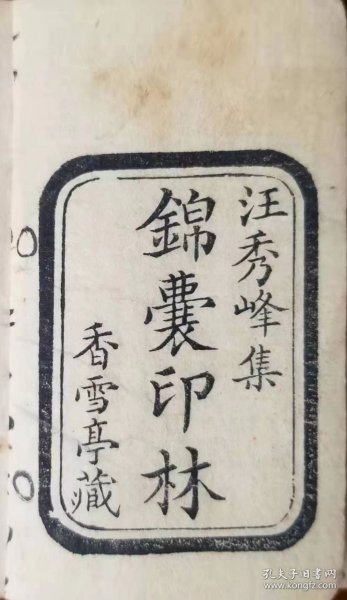 汪秀峰集
錦囊印林
香雪亭藏
孔夫子旧书网
www.kongfz.com